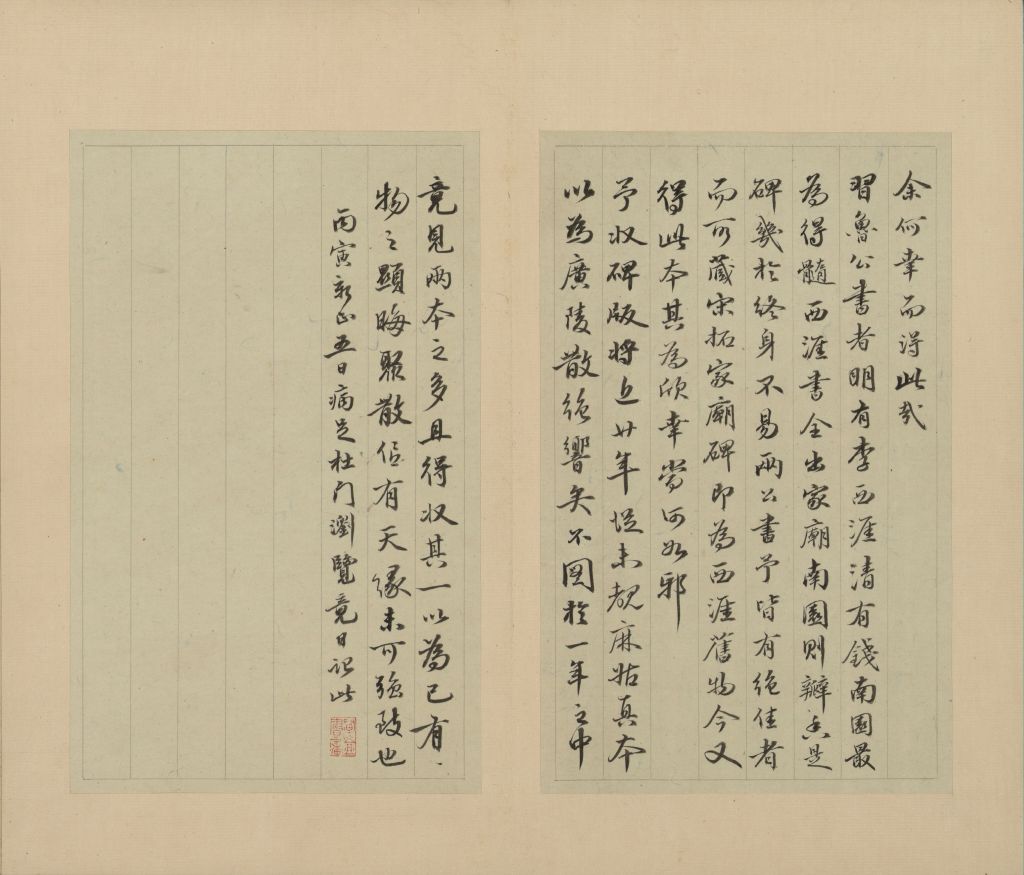 余何幸而得此哉
習魯公書者明有李西涯清有錢南園最
為得髓西涯書全出家廟南園則瓣香是
碑幾於終身不易兩公書予皆有絕佳者
而可藏宋拓家廟碑即為西涯舊物今又
得此本其為欣幸當何如邪
予收碑版將近廿年從未覩麻姑真本
以為廣陵散絕響矣不圖於一年之中
竟見兩本之多且得收其一以為己有
物之顯晦聚散信有天緣未可強致也
丙寅新正五日病足杜門瀏覽竟日記此